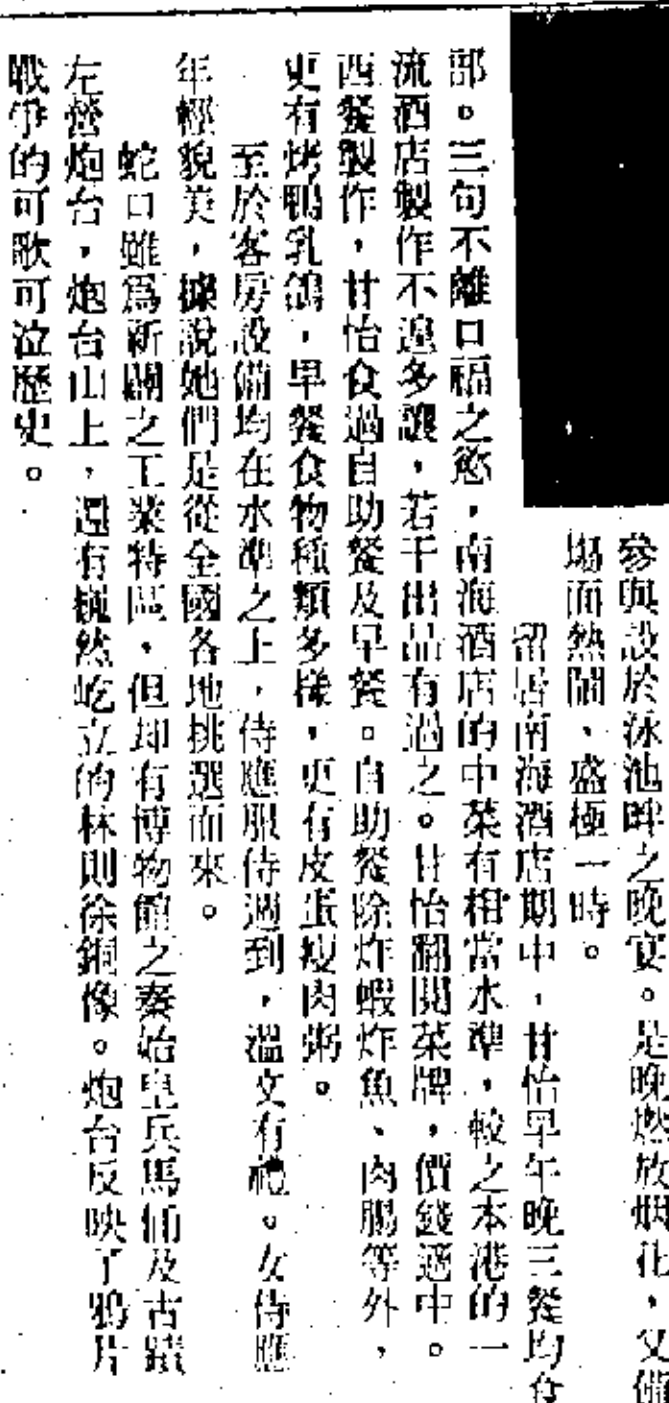 參與設於泳池畔之晚宴。是晚燃放烟花,又備
場面熱鬧、盛極一時。
留居南海酒店期中,甘怡早午晚三餐均食
部。三句不離口福之慾,南海酒店的中菜有相當水準,較之本港的一
流酒店製作不遑多讓,若干出品有過之。甘怡翻閱菜牌,價錢適中。
西餐製作,甘怡食過自助餐及早餐。自助餐除炸蝦炸魚、肉腸等外,
更有烤鴨乳鴿,早餐食物種類多樣,更有皮蛋瘦肉粥。
至於客房設備均在水準之上,侍應服侍週到,溫文有禮。女侍應
年輕貌美,據說她們是從全國各地挑選而來。
蛇口雖為新闢之工業特區,但却有博物館之秦始皇兵馬俑及古蹟
左營炮台,炮台山上,還有巍然屹立的林則徐銅像。炮台反映了鴉片
戰爭的可歌可泣歷史。